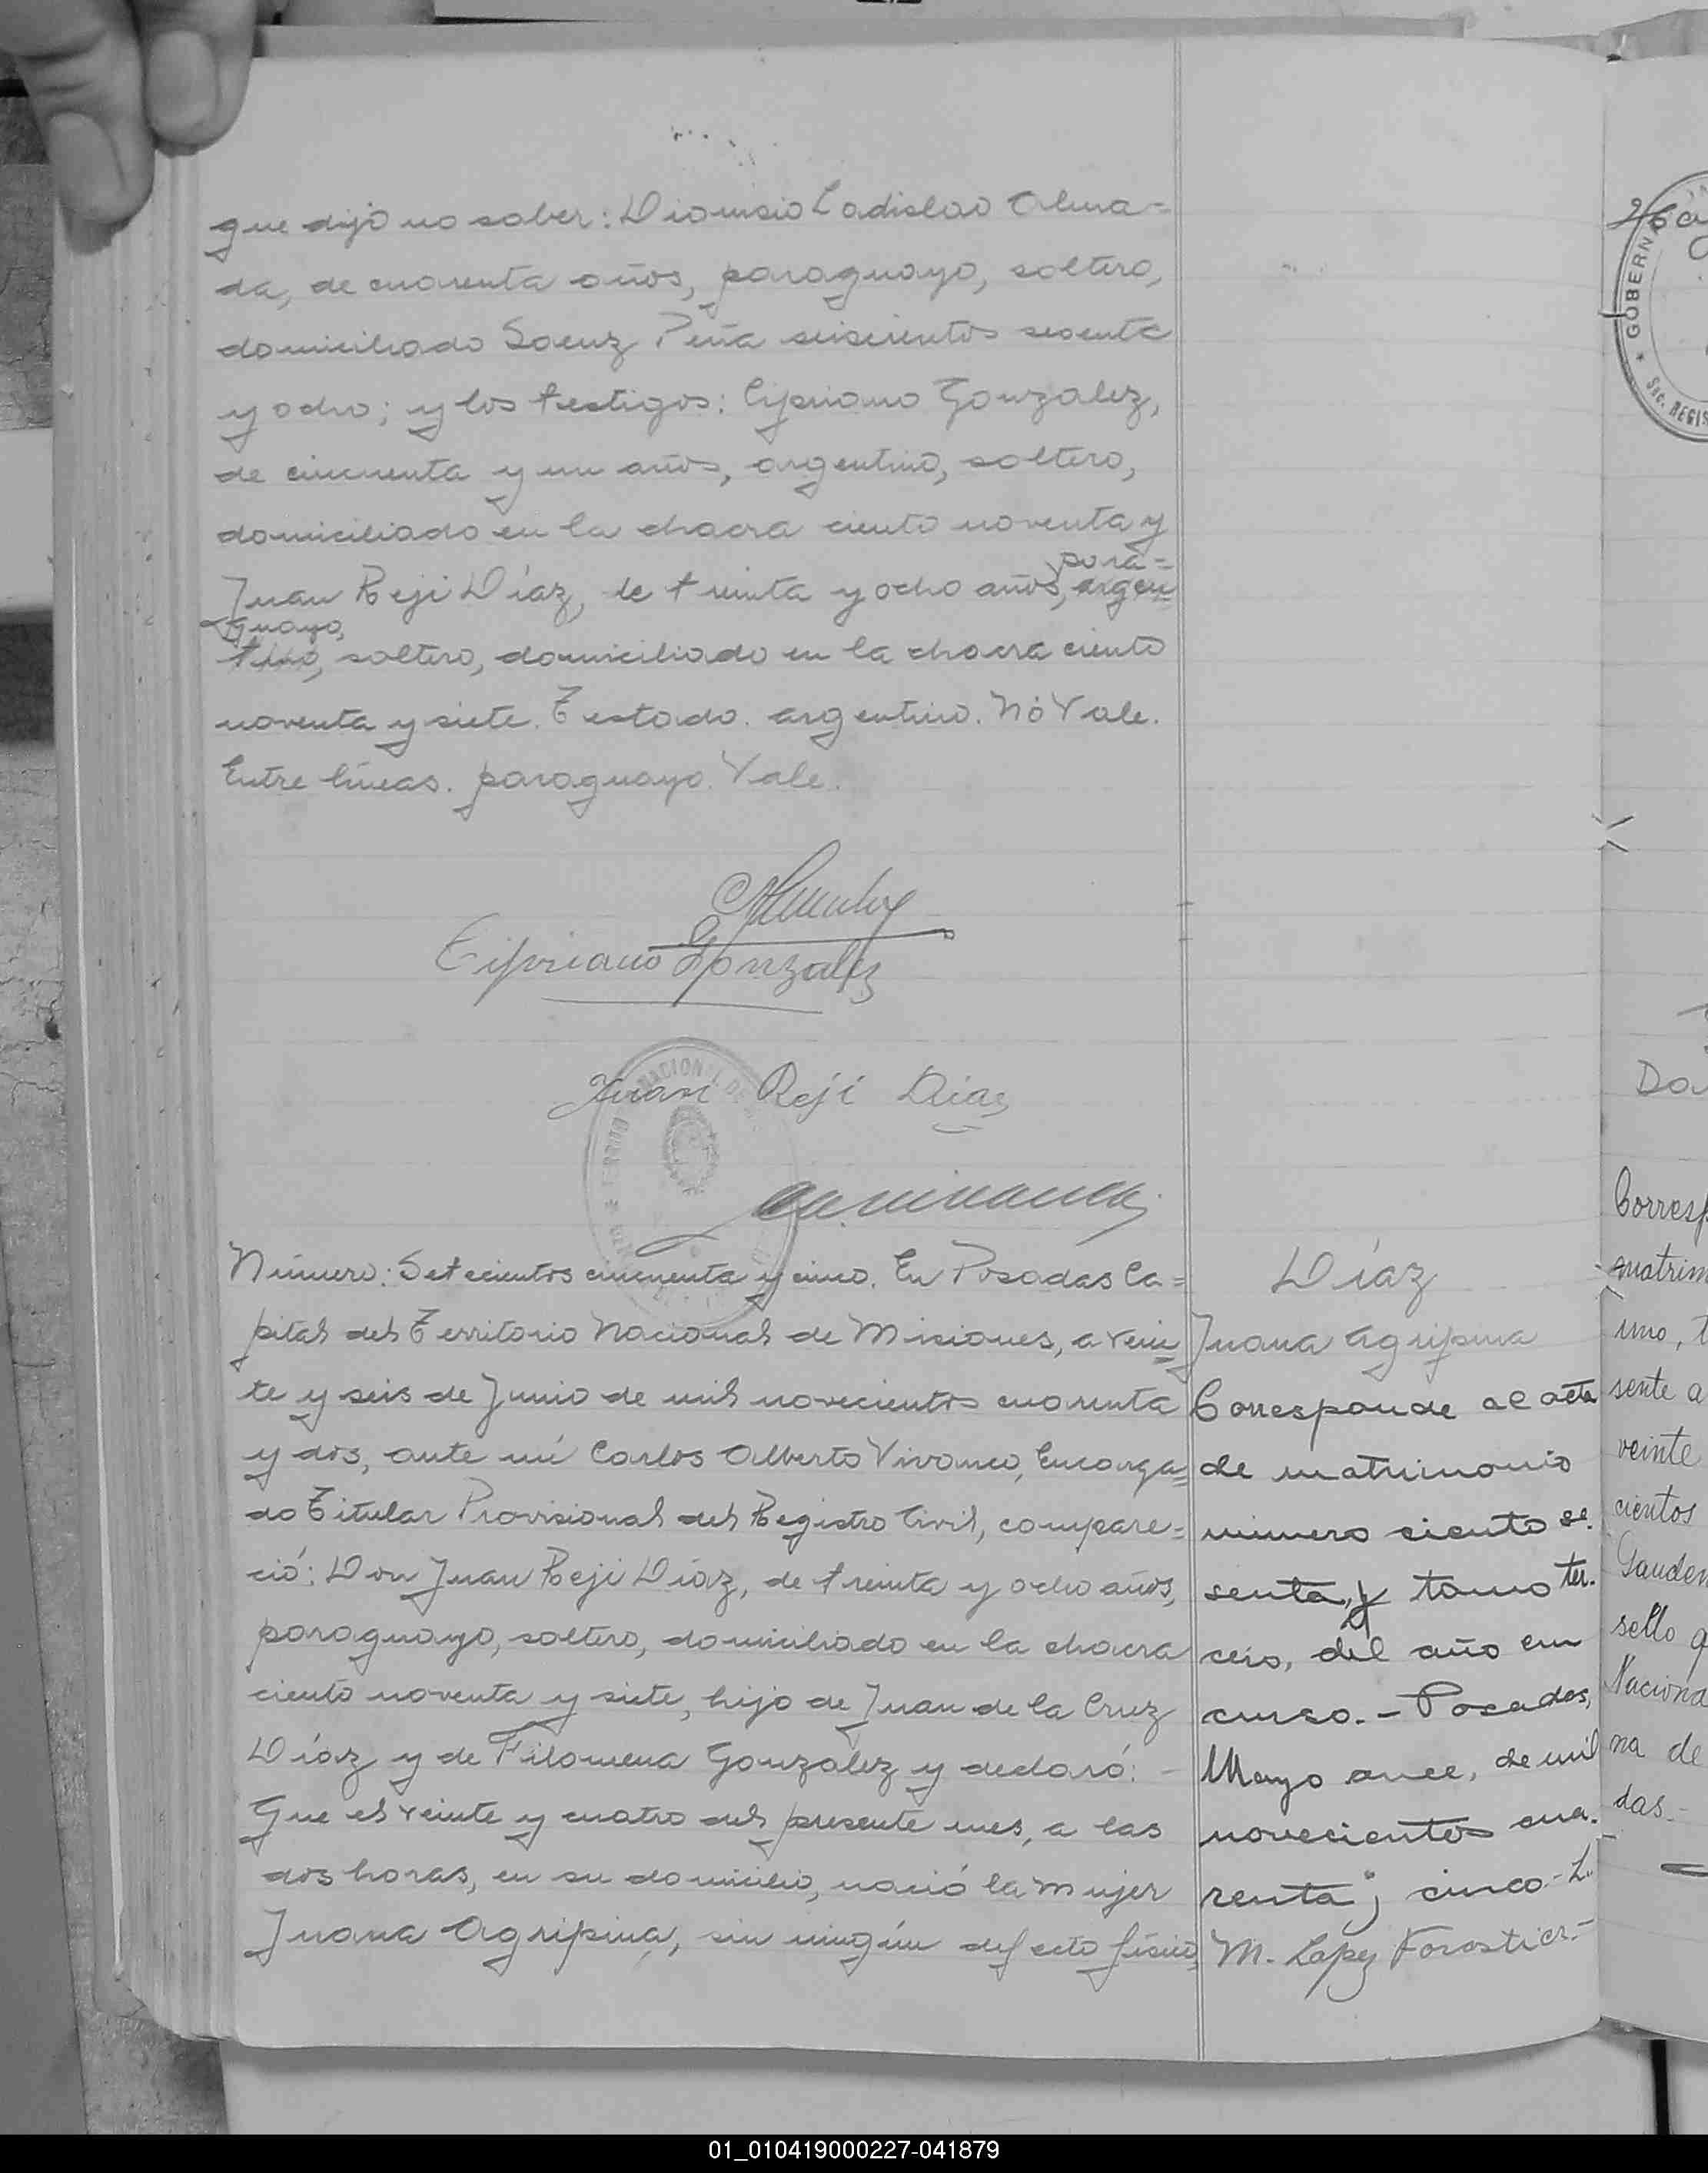 que dijo no saber: Dionisio Ladislao Alma=
da, de cuarenta años, paraguayo, soltero,
domiciliado Saenz Peña seiscientos sesenta
y ocho; y los testigos: Cipriano Gonzalez,
de cincuenta y un años, argentino, soltero,
domiciliado en la chacra ciento noventa y
para=
Juan Reji Díaz, de treinta y ocho años, argen=
guayo,
tino, soltero, domiciliado en la chacra ciento
noventa y siete. Testado. argentino. Nó Vale.
Entre líneas. paraguayo. Vale.
Cipriano Gonzalez
Juan Reji Diaz
Número: Setecientos cincuenta y cinco. En Posadas Ca=
pital del Territorio Nacional de Misiones, a vein=
te y seis de Junio de mil novecientos cuarenta
y dos, ante mí Carlos Alberto Vivanco, Encarga=
do Titular Provisional del Registro Civil, compare=
ció: Don Juan Reji Díaz, de treinta y ocho años,
paraguayo, soltero, domiciliado en la chacra
ciento noventa y siete, hijo de Juan de la Cruz
Díaz y de Filomena Gonzalez y declaró: -
Que el veinte y cuatro del presente mes, a las
dos horas, en su domicilio, nació la mujer
Juana Agripina, sin ningún defecto físico,
Díaz
Juana Agripina
Corresponde al acta
de matrimonio
número ciento se.
senta, y tomo ter.
cero, del año en
curso. - Posadas,
Mayo once, de mil
novecientos cua.
renta y cinco.- L.
M. Lopez Forastier.-
GOBERN
Sec. REGIS
Do
Corresp
matrim
uno, t
sente a
veinte
cientos
Gauden
sello q
Naciona
na de
das.-
01_010419000227-041879